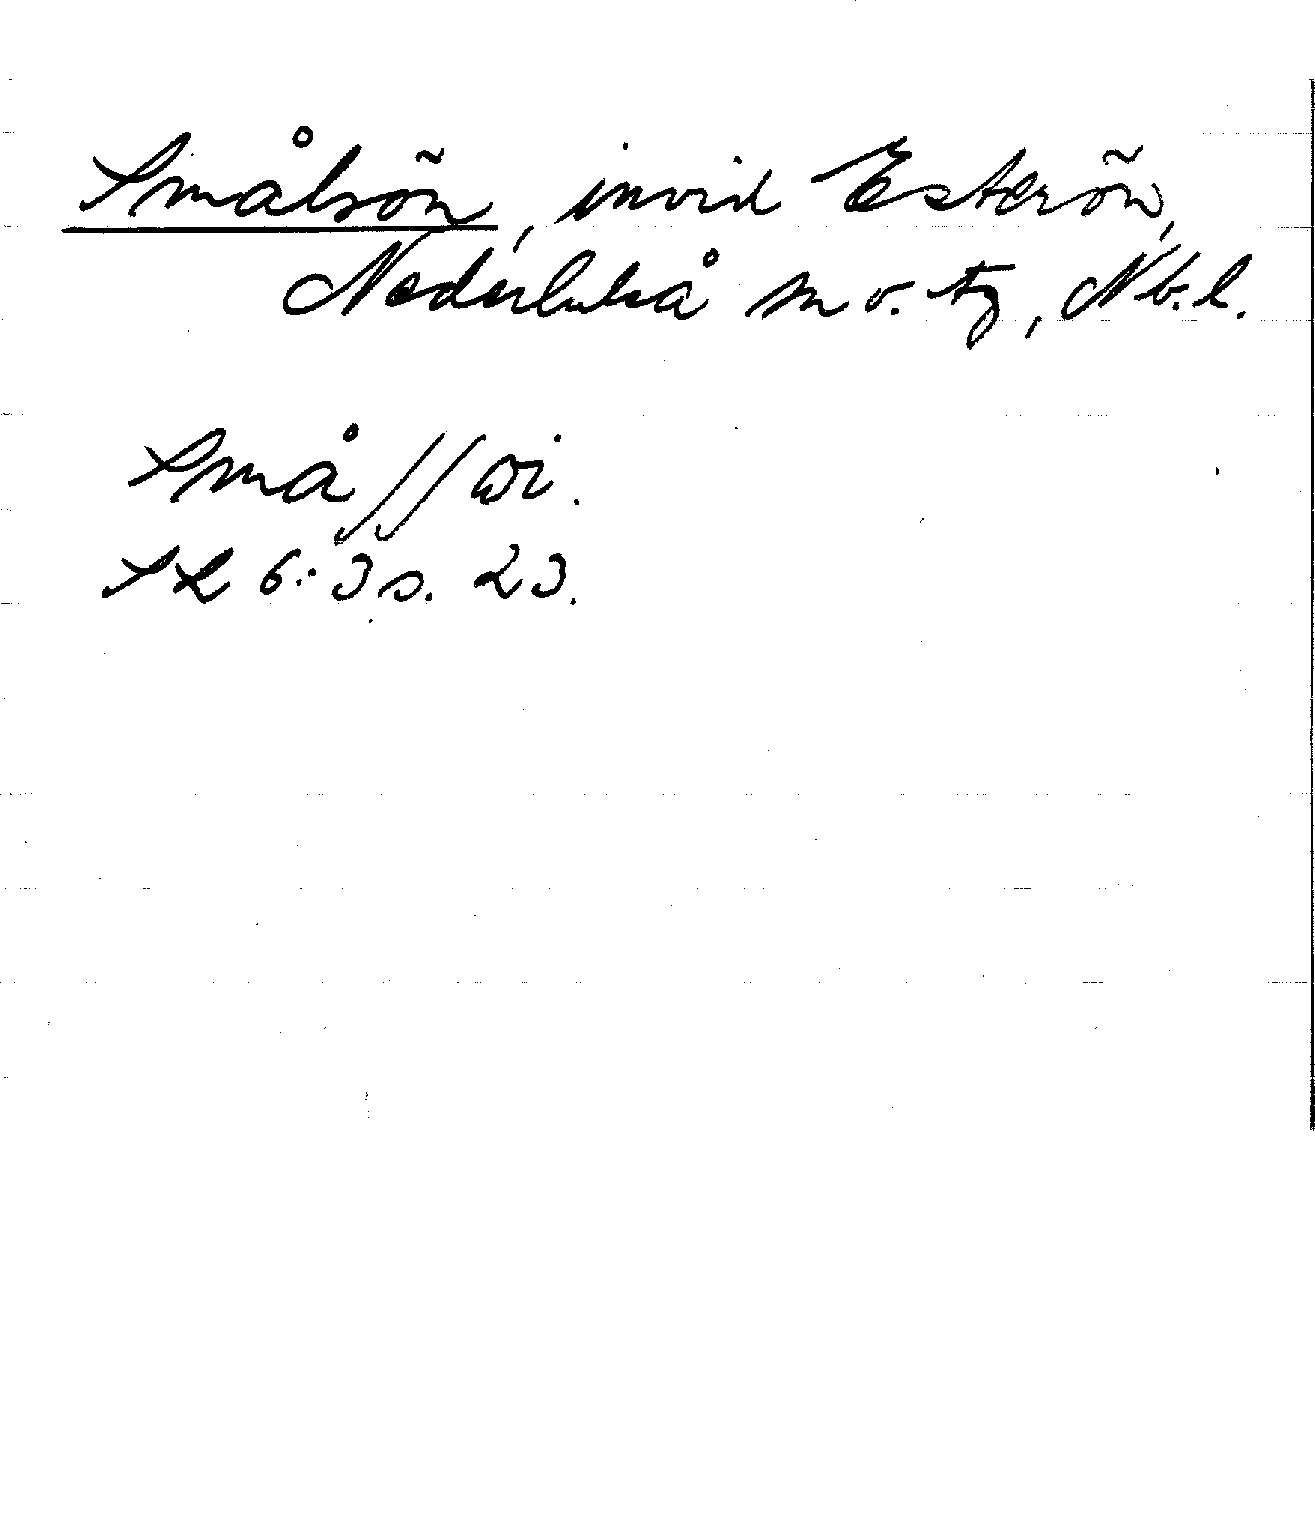 Smålsön, invid Esterön,
Nederluleå sn o. tg, Nb. l.
Små//öi.
SL 6:3 s. 23.